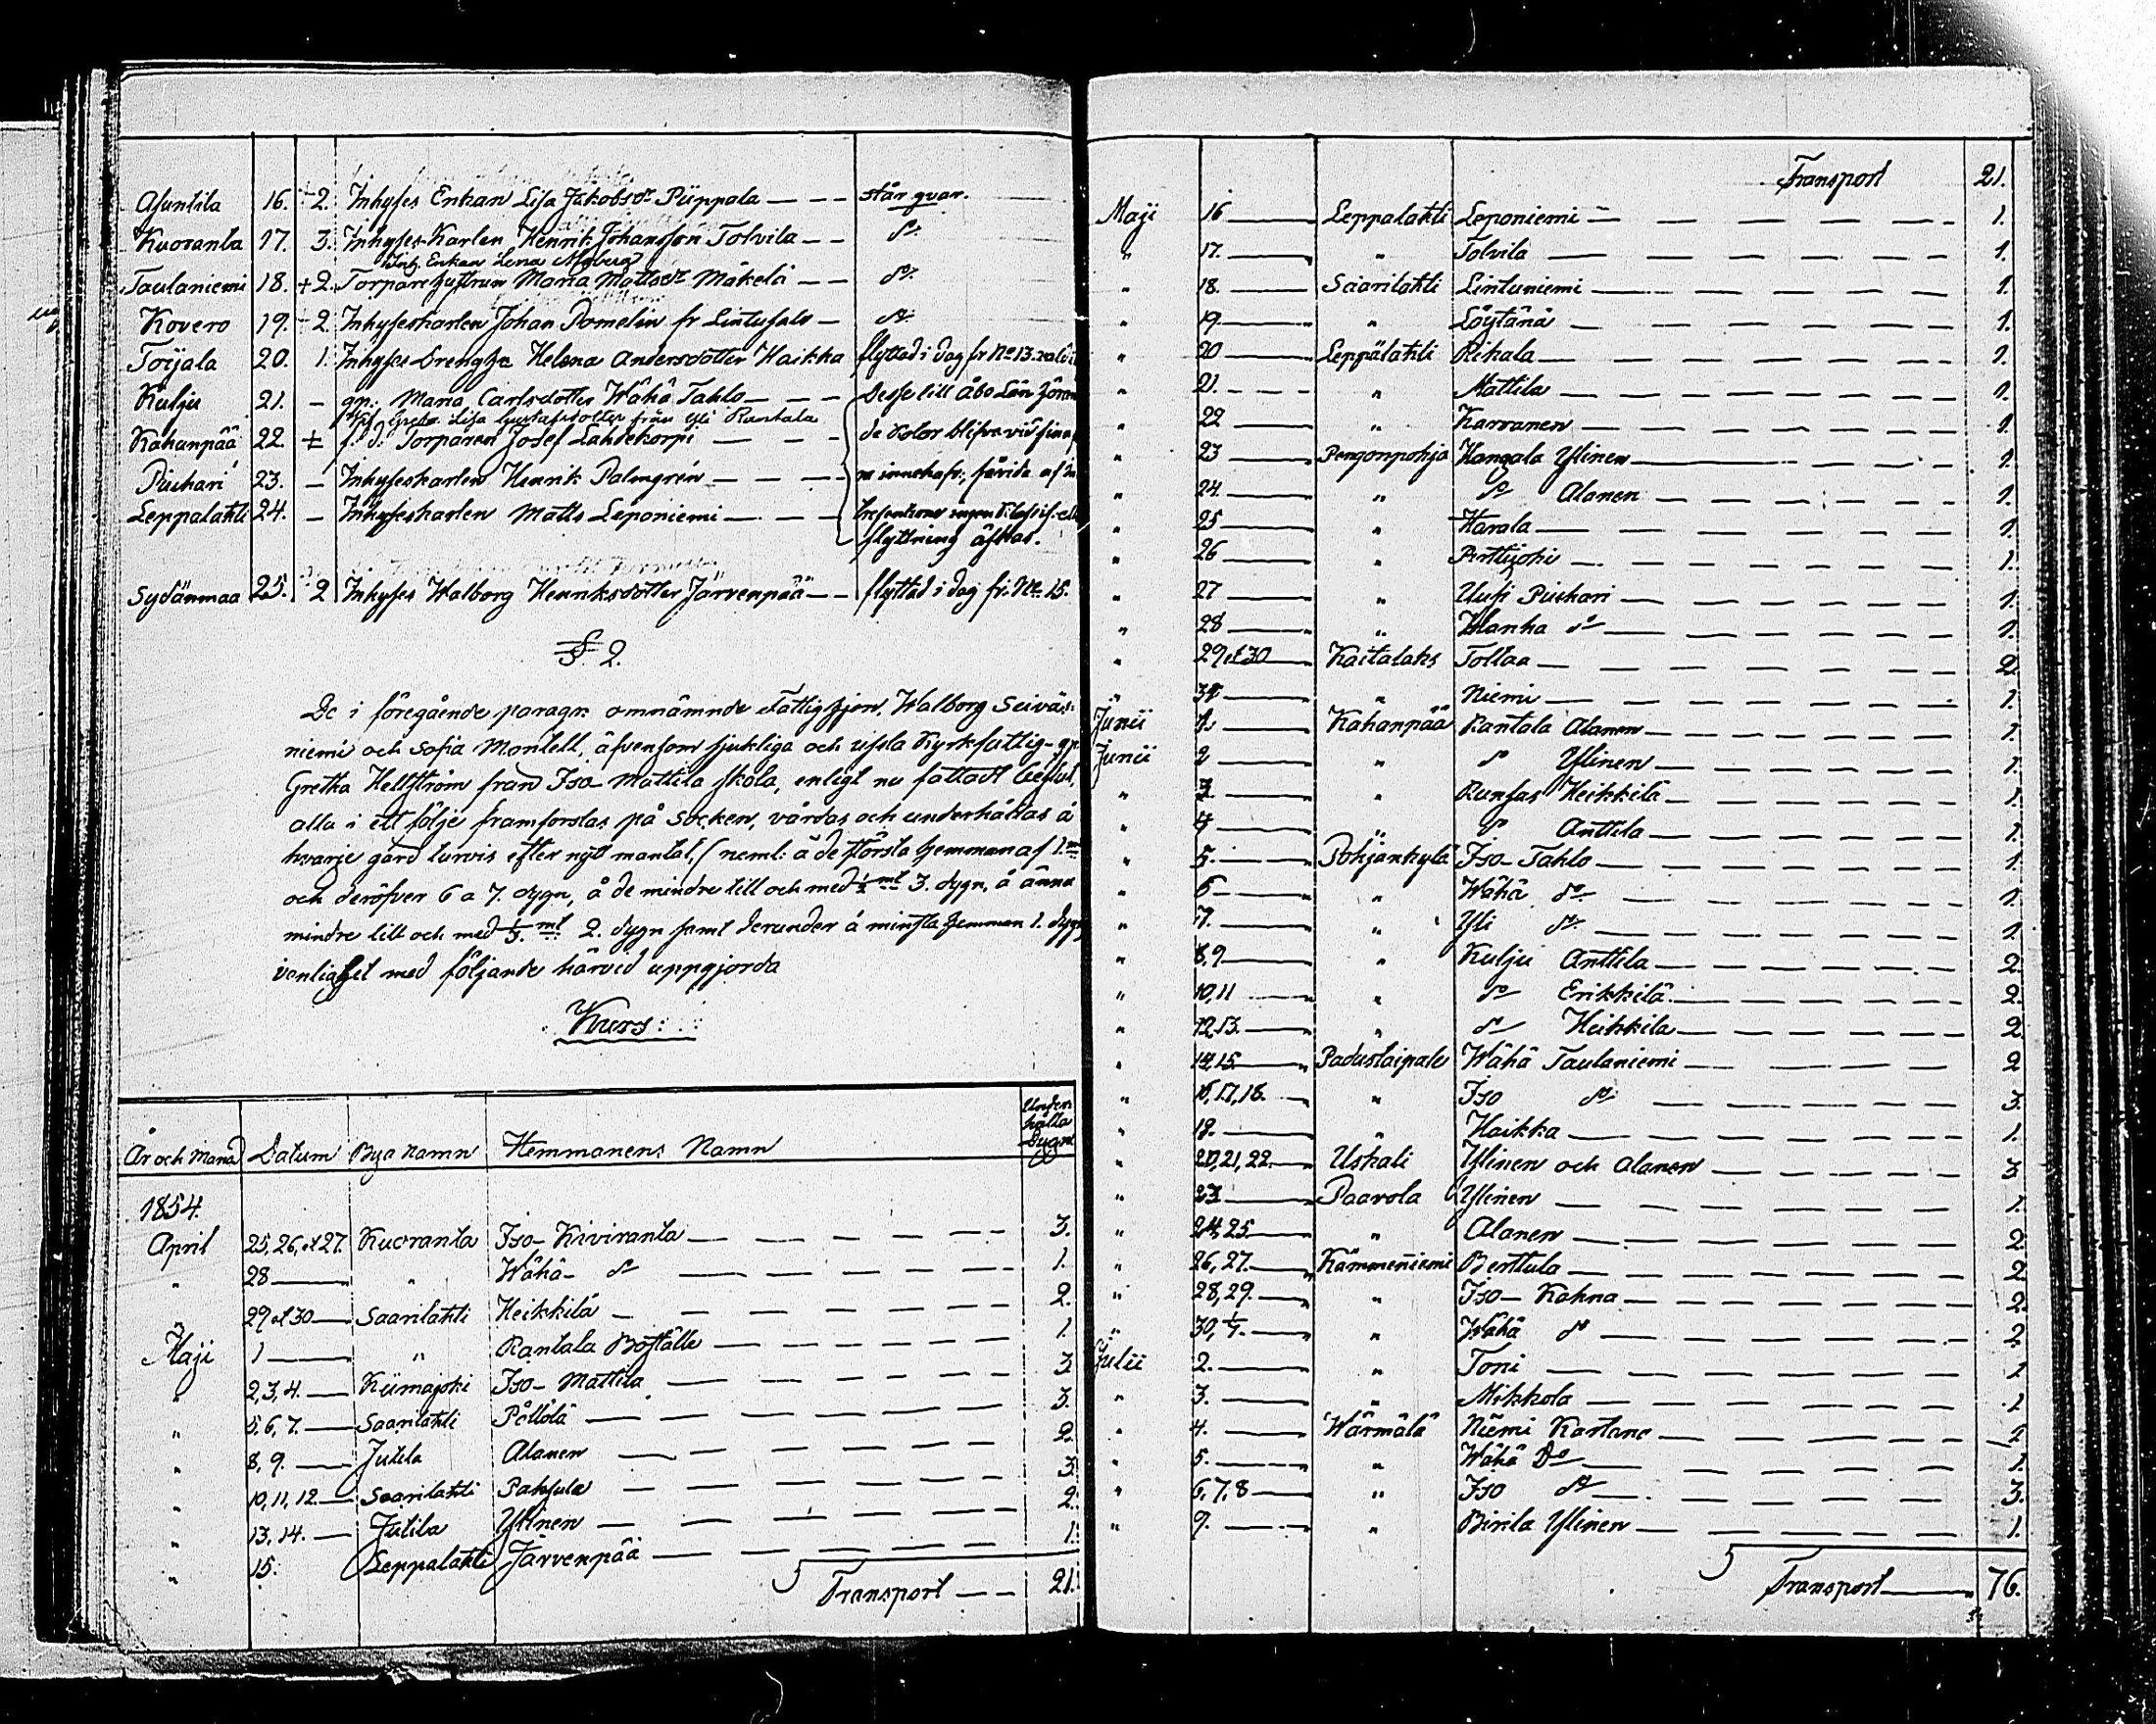 Asuntila 16. 2. Inhyses Enkan Lisa Jakobsdr Piippala — — — står qvar.
Kuoranta 17. 3. Inhyses Karlen Henrik Johansson Tolvila — — do
Inh. Enkan Lena
Taulaniemi 18. +2. Torpare hustrun Maria Mattsdr Mäkelä — — do
Kovero 19. 2. Inhyseskarlen Johan Domelin fr Lintusalo — do
Toijala 20. 1. Inhyses Drengh. Helena Andersdotter Haikka flyttad i dag fr No 13.
Kulju 21. – gp: Maria Carlsdotter Wähä Tahlo — — — Desse till Åbo Län
Greta Lisa Gustafsdotter från Yli Rantala
Kahanpää 22. ± f. d. Torparen Josef Lahdekorpi — — — de rotor blifva vid sina
Pichari 23. – Inhyseskarlen Henrik Palmgrén — — — innehafv.
Leppalahti 24. – Inhyseskarlen Matts Leponiemi — — —
flyttning äskas.
Sydänmaa 25. 2 Inhyses Walborg Henriksdotter Järvenpää — — flyttad i dag fr. No 15.
§ 2.
De i föregående paragr. omnämnde Fättighjon, Walborg Seiväs-
niemi och Sofia Montell, äfvensom sjukliga och usla Kyrkfattig-gp.
Gretha Hellström från Iso-Mattila skola, enligt nu fattadt beslut,
alla i ett följe framforslas på Socken, vårdas och underhållas å
hvarje gård turvis efter nytt mantal, (neml: å de största hemman af 1. ml
och deröfver 6 a 7. dygn, å de mindre till och med 1/2 ml 3. dygn, å ännu
mindre till och med 1/3 ml 2. dygn samt derunder å minsta hemman 1. dygn
i enlighet med följande härvid uppgjorda
Kurs:
År och Månad Datum Bya namn Hemmanens Namn Underhålls Dygn
1854.
April 25, 26, et 27. Kuoranta Iso-Kiviranta — — — 3.
" 28 — " Wähä- do — — — 1.
29 et 30 — Saarilahti Heikkilä — — — 2.
Maji 1 — " Rantala Boställe — — — 1.
" 2, 3, 4. — Kiimajoki Iso-Mattila — — — 3
" 5, 6, 7. — Saarilahti Pällölä — — — 3.
" 8, 9. — Jutila Alanen — — — 2.
" 10, 11, 12. — Saarilahti Pahsula — — — 3
" 13, 14. — Jutila Ylinen — — — 2.
" 15. Leppalahti Järvenpää — — — 1.
Transport — — 21.
Transport 21.
Maji 16 — Leppalahti Leponiemi — — — 1.
" 17. — " Tolvila — — — 1.
" 18. — Saarilahti Lintuniemi — — — 1.
" 19 — " Löytänä — — — 1.
" 20 — Leppälahti Rihala — — — 1.
" 21. — " Mattila — — — 1.
" 22 — " Karvanen — — — 1
" 23 — Pengonpohja Hangala Ylinen — — — 1.
" 24. — " do Alanen — — — 1.
" 25 — " Harala — — — 1.
" 26 — " Perttijoki — — — 1.
" 27 — " Uusi Pichari — — — 1.
" 28 — " Wanha do — — — 1.
" 29 et 30 — Kaitalaks Tottaa — — — 2
" 31. — " Niemi — — — 1.
Junii 1. — Kahanpää Rantala Alanen — — — 1.
Junii 2 — " do Ylinen — — — 1.
" 3 — " Runsas Heikkilä — — — 1.
" 4 — " do Anttila — — — 1.
" 5. — Pohjankylä Iso-Tahlo — — — 1.
" 6 — " Wähä do — — — 1.
" 7. — " Yli do — — — 1.
" 8, 9 — " Kulju Anttila — — — 2.
" 10, 11 — " do Erikkilä — — — 2.
" 12, 13. — " do Heikkila — — — 2
" 14, 15. — Padustaipale Wähä Taulaniemi — — — 2
" 16, 17, 18. — " Iso do — — — 3.
" 19. — " Haikka — — — 1.
" 20, 21, 22. — Uskali Ylinen och Alanen — — — 3
" 23 — Paavola Ylinen — — — 1.
" 24, 25. — " Alanen — — — 2.
" 26, 27. — Kämmeniemi Berttula — — — 2
" 28, 29. — " Iso-Kahna — — — 2.
" 30, 1/7. — " Wähä do — — — 2
Julii 2. — " Toni — — — 1
" 3. — " Mikkola — — — 1
" 4. — Wärmälä Niemi Kartano — — — 1
" 5. — " Wähä Do — — — 1.
" 6, 7, 8 — " Iso do — — — 3.
" 9. — " Birila Ylinen — — — 1.
Transport — 76.